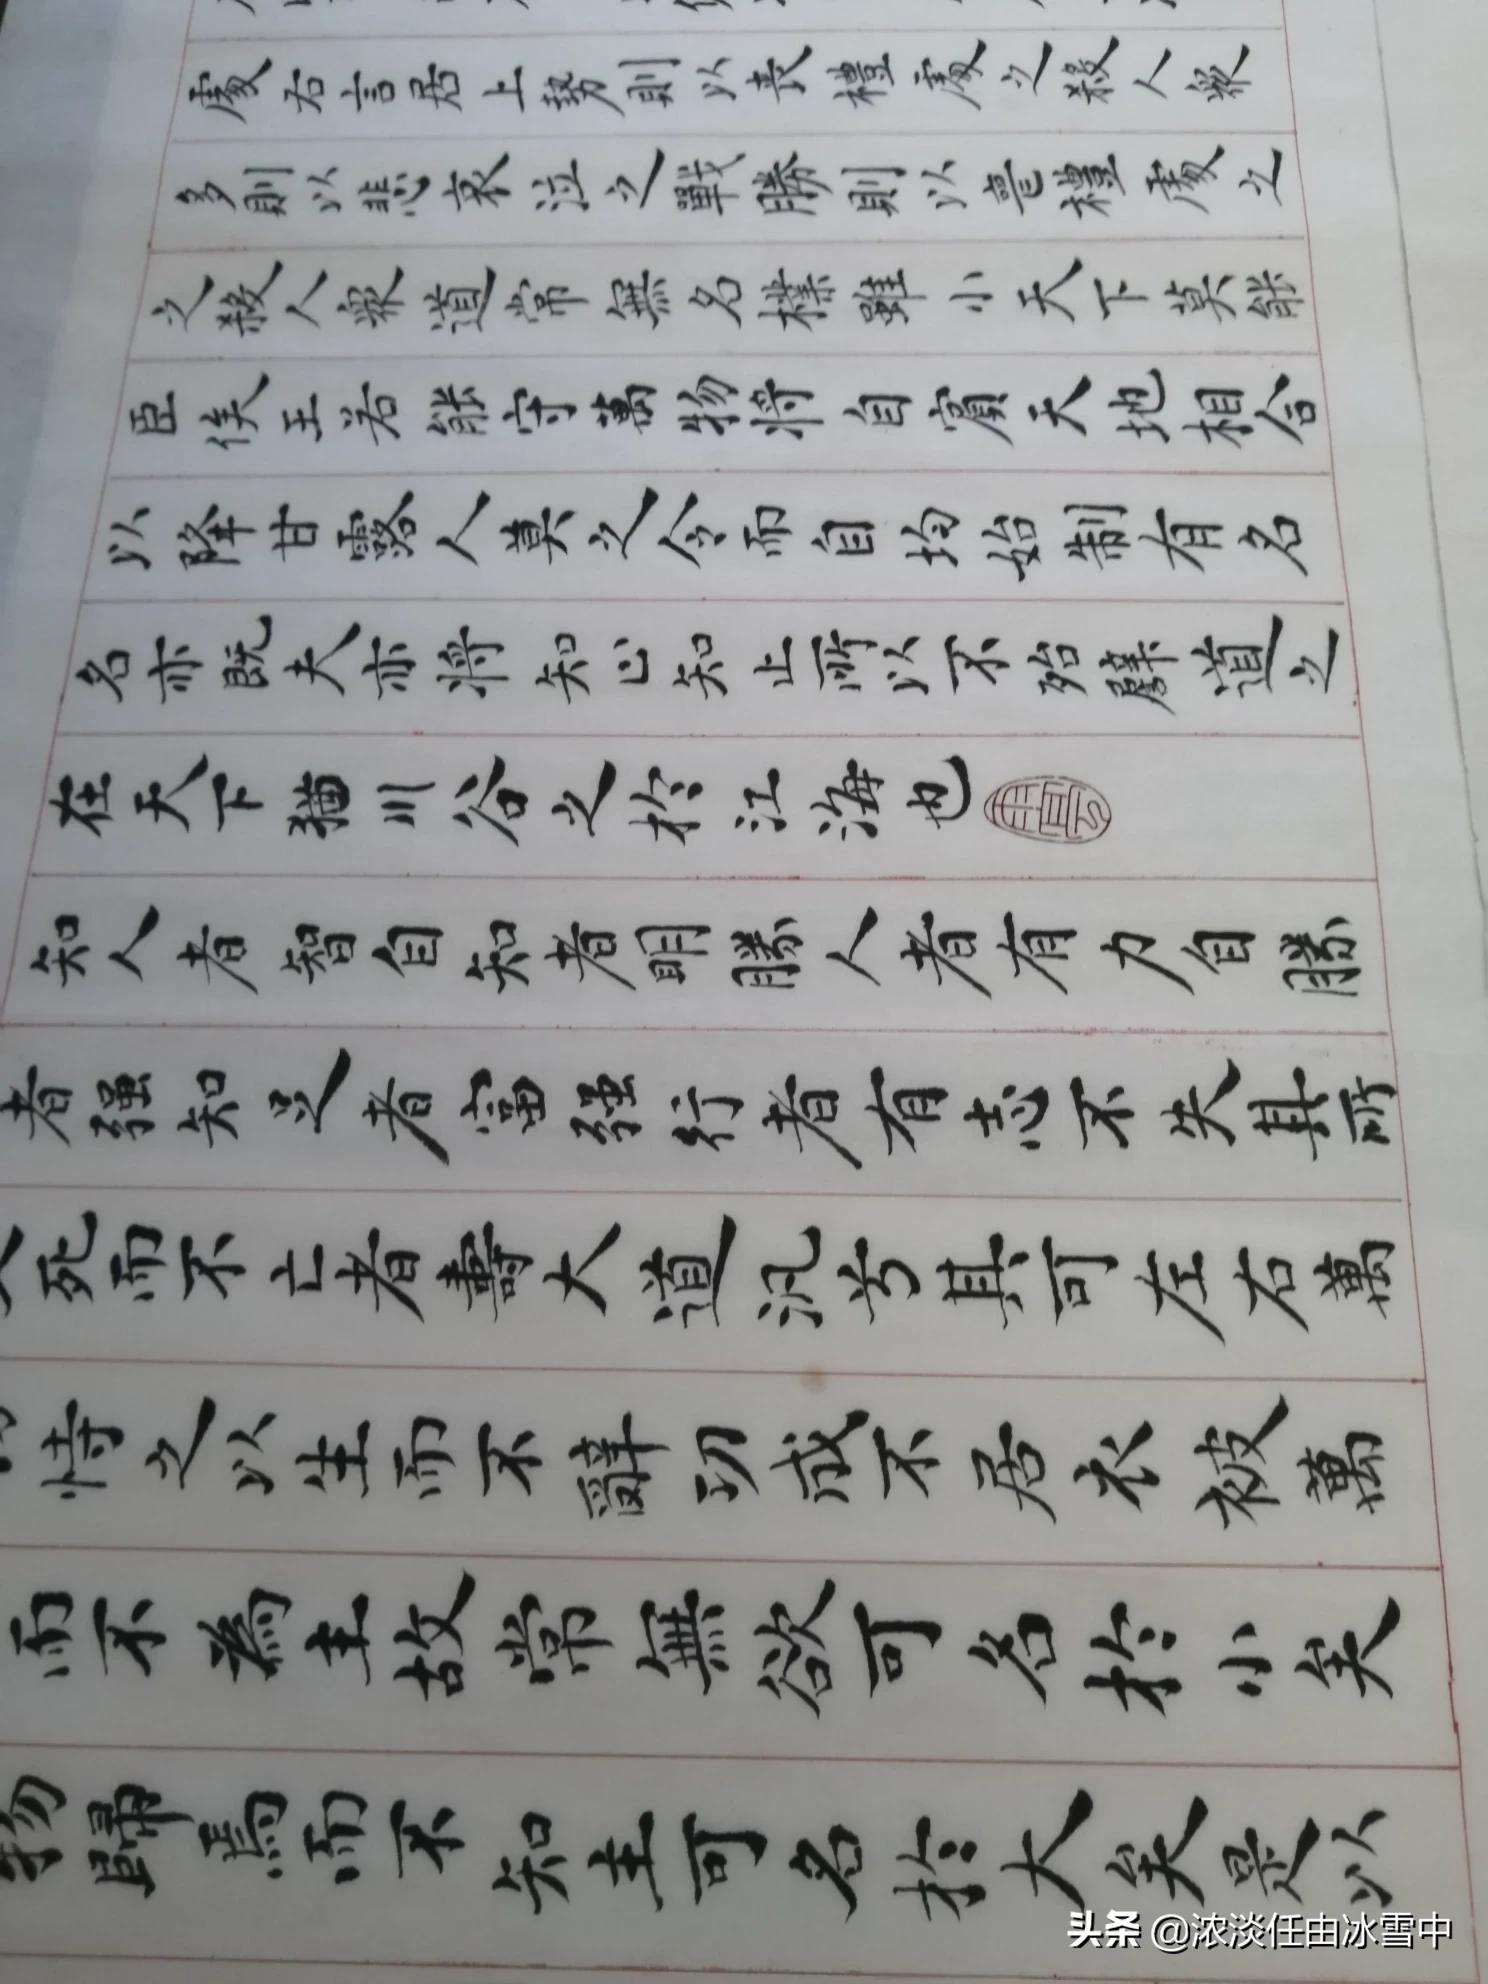 處右言居上勢則以喪禮處之殺人衆
多則以悲哀泣之戰勝則以喪禮處之
之殺人衆道常無名樸雖小天下莫能
臣侯王若能守萬物將自賓天地相合
以降甘露人莫之令而自均始制有名
名亦既夫亦將知止知止所以不殆譬道之
在天下猶川谷之於江海也
知人者智自知者明勝人者有力自勝
者强知足者富强行者有志不失其所
死而不亡者壽大道汎兮其可左右萬
恃之以生而不辭功成不居衣被萬
而不為主故常無欲可名於小矣
物歸焉而不知主可名於大矣是以
头条 @浓淡任由冰雪中